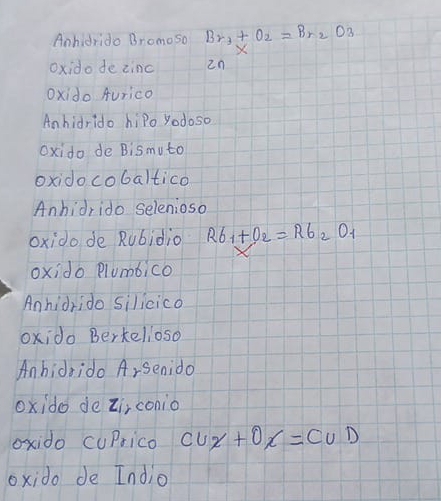 Anhidrido Bromoso Br₃ + O₂ = Br₂ O₃
x
oxido de zinc zn
oxido Aurico
Anhidrido hipo yodoso
oxido de Bismuto
oxido cobaltico
Anhidrido selenioso
oxido de Rubidio Rb₁ + O₂ = Rb₂ O₁
x
oxido Plumbico
Anhidrido silicico
oxido Berkelioso
Anhidrido Arsenido
oxido de zirconio
oxido cuprico CU2 + O2 = CUO
oxido de Indio